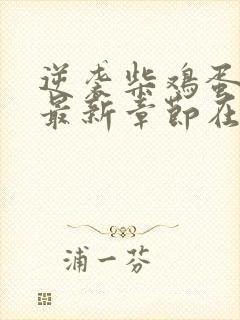 逆袭柴鸡蛋
最新章节在
浦一芬